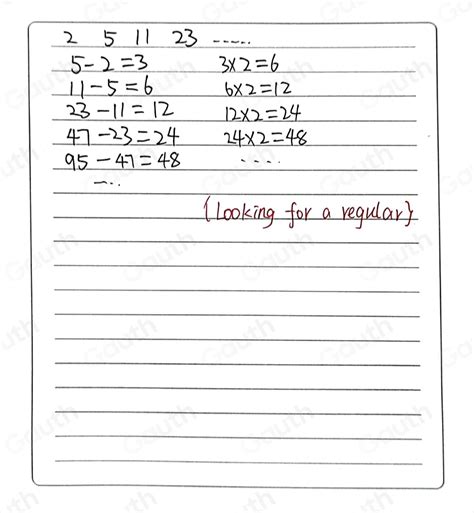 2 5 11 23 ......
5-2=3 3×2=6
11-5=6 6×2=12
23-11=12 12×2=24
47-23=24 24×2=48
95-47=48 ....
....
{Looking for a regular}